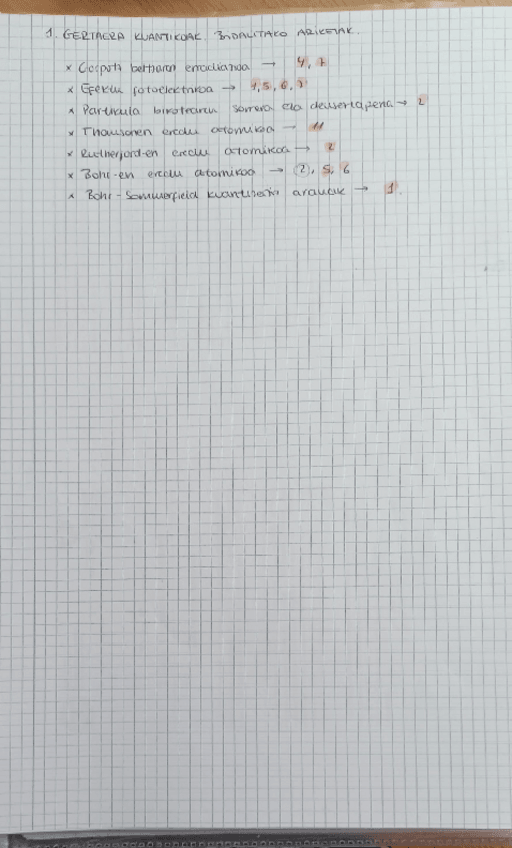 1. GERTAERA KUANTIKOAK. BIDALITAKO ARIKETAK.
× Gorputz beltzaren erradiazioa → 4, 7
× Efektu fotoelektrikoa → 1, 5, 6, 7
× Partikula birtualen sorrera eta deuseztapena → 2
× Thomsonen eredu atomikoa → 11
× Rutherford-en eredu atomikoa → 2
× Bohr-en eredu atomikoa → 2, 5, 6
× Bohr-Sommerfield kuantizazio arauak → 1.